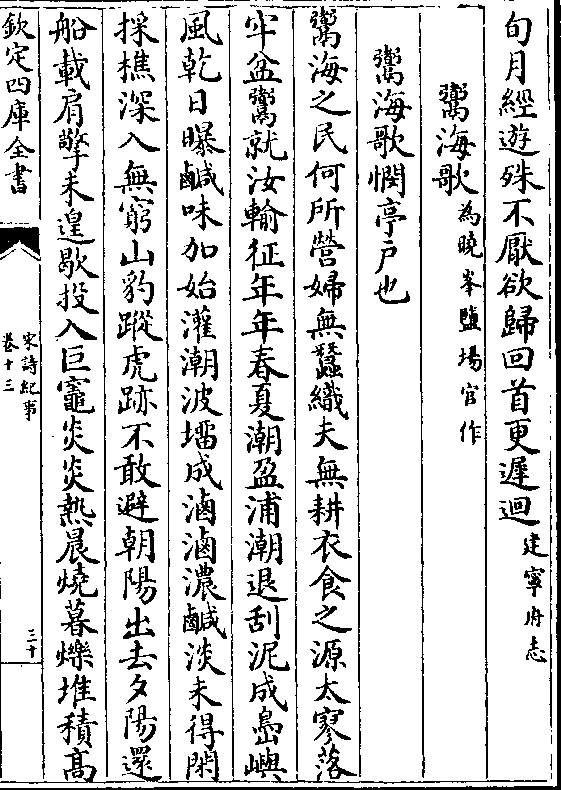 旬月經遊殊不厭欲歸回首更遲迴建寧府志
鬻海歌為曉峯鹽場官作
鬻海歌憫亭户也
鬻海之民何所營婦無蠶織夫無耕衣食之源太寥落
牢盆鬻就汝輸征年年春夏潮盈浦潮退刮泥成島嶼
風乾日曝鹹味加始灌潮波塯成滷滷濃鹹淡未得閑
採樵深入無窮山豹蹤虎跡不敢避朝陽出去夕陽還
船載肩擎未遑歇投入巨竈炎炎熱晨燒暮爍堆積髙
欽定四庫全書
宋詩紀事
卷十三
三十